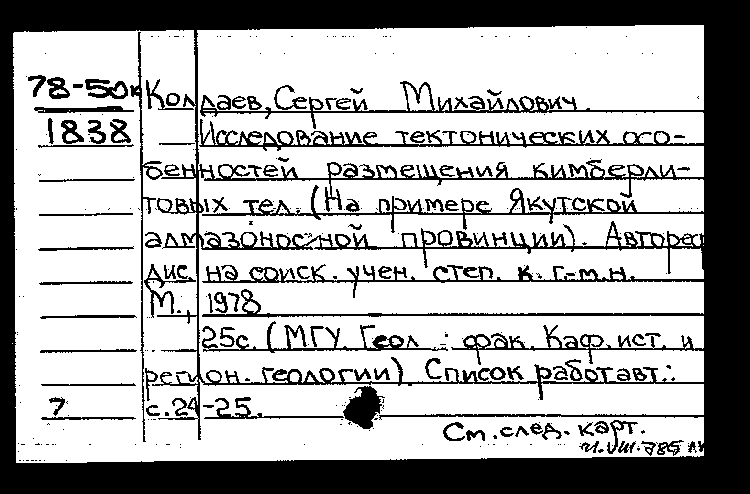 78-50к Колдаев, Сергей Михайлович.
1838 Исследование тектонических осо-
бенностей размещения кимберли-
товых тел. (На примере Якутской
алмазоносной провинции). Автореф
дис. на соиск. учен. степ. к. г.-м.н.
М., 1978
25с. (МГУ. Геол. фак. Каф. ист. и
регион. геологии). Список работ авт.:
7 с.24-25.
См. след. карт.